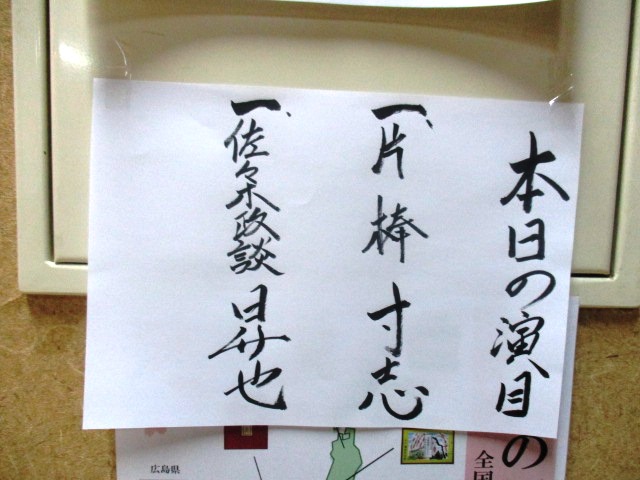 本日の演目
一、片棒 寸志
一、佐々木政談 昇也
の
全国
広島県